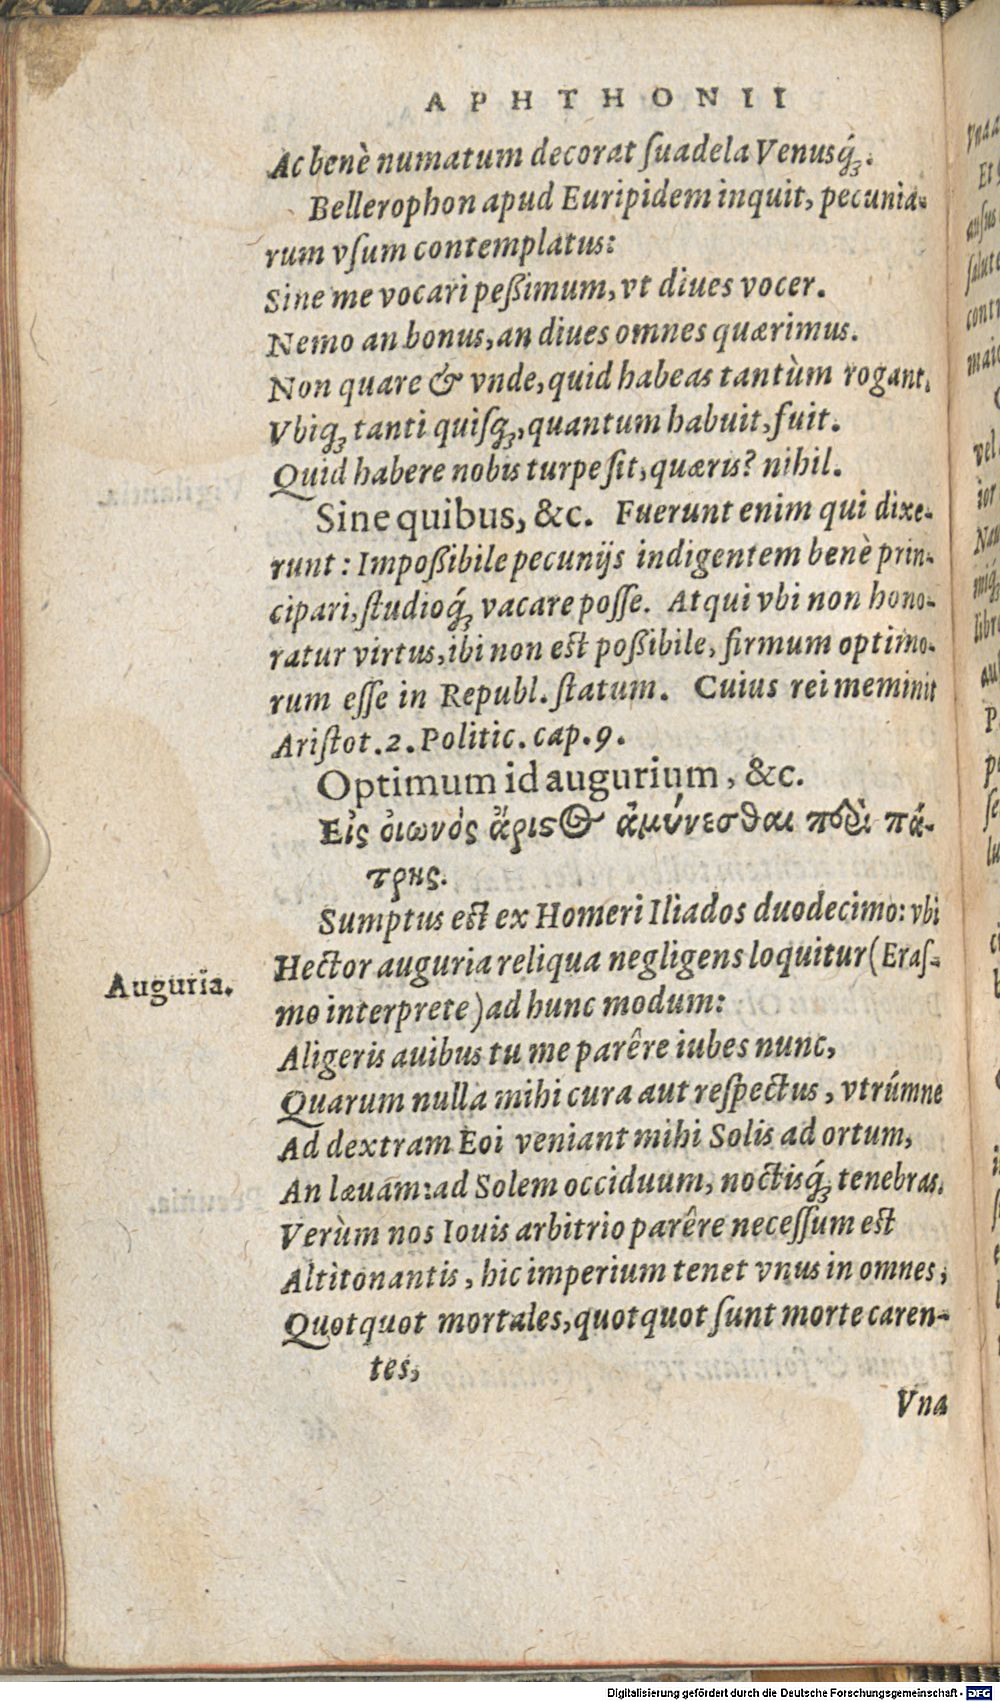 APHTHONII
Ac benè numatum decorat ſuadela Venusq́;.
Bellerophon apud Euripidem inquit, pecunia-
rum vſum contemplatus:
Sine me vocari peßimum, vt diues vocer.
Nemo an bonus, an diues omnes quærimus.
Non quare & vnde, quid habeas tantùm rogant.
Vbiq; tanti quiſq;, quantum habuit, fuit.
Quid habere nobis turpe ſit, quæris? nihil.
Sine quibus, &c. Fuerunt enim qui dixe-
runt: Impoßibile pecunijs indigentem benè prin-
cipari, ſtudioq́; vacare poſſe. Atqui vbi non hono-
ratur virtus, ibi non est poßibile, firmum optimo-
rum eſſe in Republ. ſtatum. Cuius rei meminit
Ariſtot. 2. Politic. cap. 9.
Optimum id augurium, &c.
Εἷς οἰωνός ἄριστος ἀμύνεσθαι περὶ πά-
τρης.
Sumptus est ex Homeri Iliados duodecimo: vbi
Hector auguria reliqua negligens loquitur (Eraſ-
Auguria.
mo interprete) ad hunc modum:
Aligeris auibus tu me parêre iubes nunc,
Quarum nulla mihi cura aut reſpectus, vtrúmne
Ad dextram Eoi veniant mihi Solis ad ortum,
An læuam: ad Solem occiduum, noctisq́; tenebras.
Verùm nos Iouis arbitrio parêre neceſſum est
Altitonantis, hic imperium tenet vnus in omnes,
Quotquot mortales, quotquot ſunt morte caren-
tes,
Vna
Digitalisierung gefördert durch die Deutsche Forschungsgemeinschaft - DFG